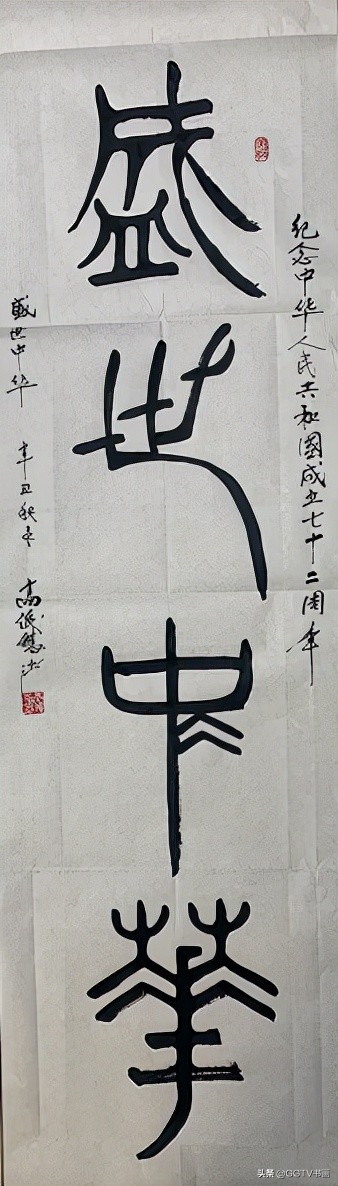 纪念中华人民共和國成立七十二周年
盛世中華
盛世中华 辛丑秋 高
头条 @GGTV书画